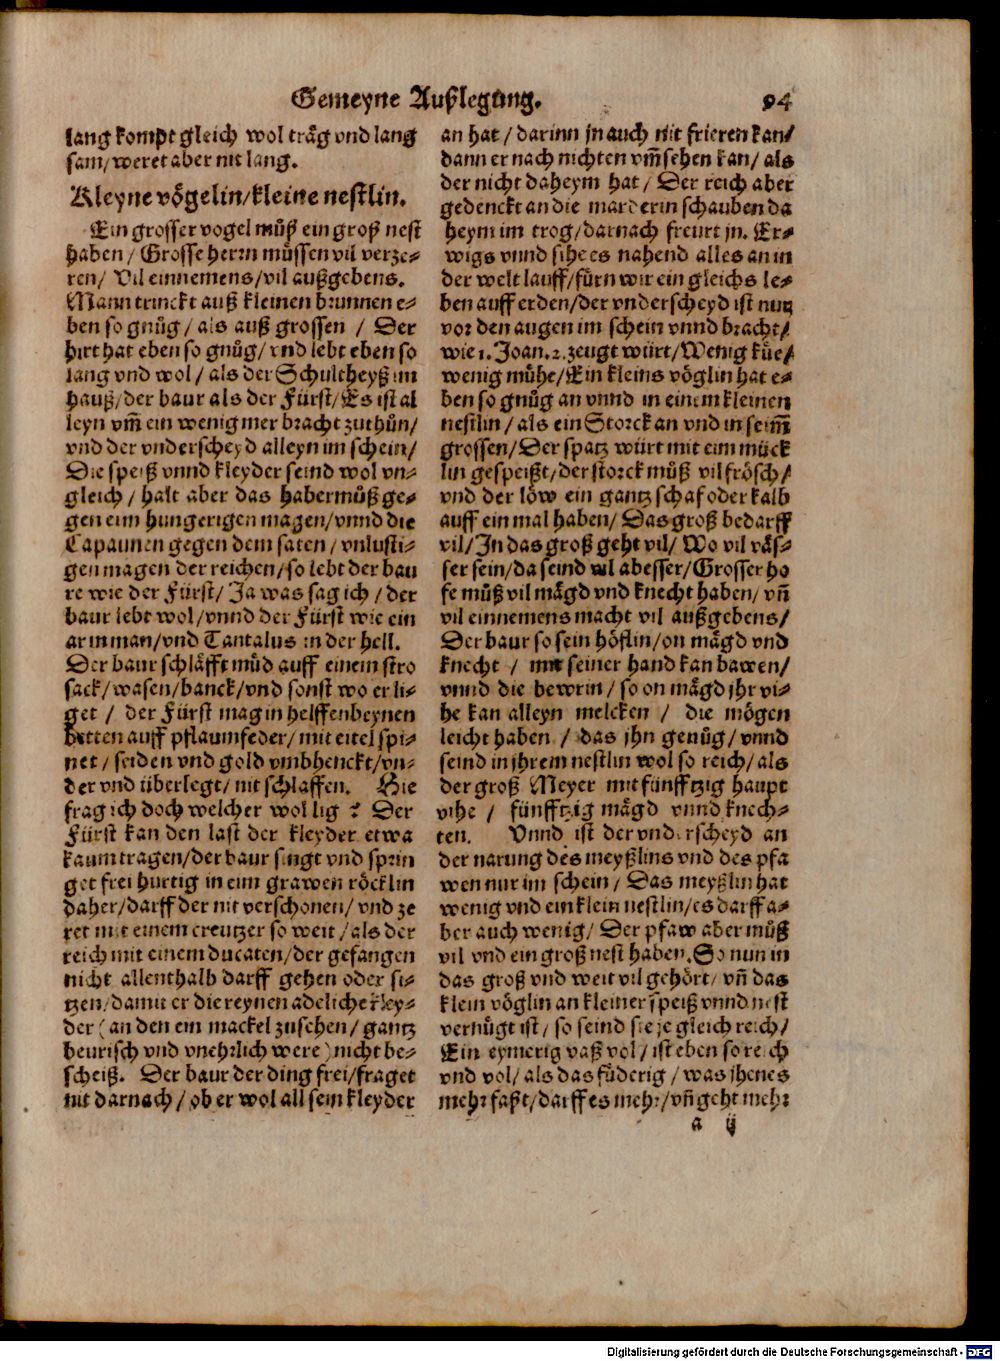 Gemeyne Außlegung. 94
lang kompt gleich wol träg vnd lang
sam/ weret aber nit lang.
Kleyne vögelin/ kleine nestlin.
Ein grosser vogel můß ein groß nest
haben/ Grosse herrn müssen vil verze⸗
ren/ Vil einnemens/ vil außgebens.
Mann trinckt auß kleinen brunnen e⸗
ben so gnůg/ als auß grossen/ Der
hirt hat eben so gnůg/ vnd lebt eben so
lang vnd wol/ als der Schultheyß im
hauß/ der baur als der Fürst/ Es ist al
leyn vm̃ ein wenig mer bracht zuthůn/
vnd der vnderscheyd alleyn im schein/
Die speiß vnnd kleyder seind wol vn⸗
gleich/ halt aber das habermůß ge⸗
gen eim hungerigen magen/ vnnd die
Capaunen gegen dem saten/ vnlusti⸗
gen magen der reichen/ so lebt der bau
re wie der Fürst/ Ja was sag ich/ der
baur lebt wol/ vnnd der Fürst wie ein
arm man/ vnd Tantalus in der hell.
Der baur schläfft müd auff einem stro
sack/ wasen/ banck/ vnd sonst wo er li⸗
get/ der Fürst mag in helffenbeynen
betten auff pflaumfeder/ mit eitel spi⸗
net/ seiden vnd gold vmbhenckt/ vn⸗
der vnd überlegt/ nit schlaffen. Hie
frag ich doch welcher wol lig? Der
Fürst kan den last der kleyder etwa
kaum tragen/ der baur singt vnd sprin
get frei hurtig in eim grawen röcklin
daher/ darff der nit verschonen/ vnd ze
ret mit einem creutzer so weit/ als der
reich mit einem ducaten/ der gefangen
nicht allenthalb darff gehen oder si⸗
tzen/ damit er die reynen adeliche kley⸗
der (an den ein mackel zusehen/ gantz
beurisch vnd vnehrlich were) nicht be⸗
scheiß. Der baur der ding frei/ fraget
nit darnach/ ob er wol all sein kleyder
an hat/ darinn jn auch nit frieren kan/
dann er nach nichten vm̃sehen kan/ als
der nicht daheym hat/ Der reich aber
gedenckt an die marderin schauben da
heym im trog/ darnach freurt jn. Er⸗
wigs vnnd sihe es nahend alles an in
der welt lauff/ fürn wir ein gleichs le⸗
ben auff erden/ der vnderscheyd ist nur
vor den augen im schein vnnd bracht/
wie 1. Joan. 2. zeugt würt/ Wenig küe/
wenig mühe/ Ein kleins vöglin hat e⸗
ben so gnůg an vnnd in einem kleinen
nestlin/ als ein Storck an vnd in seim̃
grossen/ Der spatz würt mit eim mück
lin gespeißt/ der storck můß vil frösch/
vnd der löw ein gantz schaf oder kalb
auff ein mal haben/ Das groß bedarff
vil/ In das groß geht vil/ Wo vil väs⸗
ser sein/ da seind vil abesser/ Grosser ho
fe můß vil mägd vnd knecht haben/ vñ
vil einnemens macht vil außgebens/
Der baur so sein höflin/ on mägd vnd
knecht/ mit seiner hand kan bawen/
vnnd die bewrin/ so on mägd jhr vi⸗
he kan alleyn melcken/ die mögen
leicht haben/ das jhn genůg/ vnnd
seind in jhrem nestlin wol so reich/ als
der groß Meyer mit fünfftzig haupt
vihe/ fünfftzig mägd vnnd knech⸗
ten. Vnnd ist der vnderscheyd an
der narung des meyßlins vnd des pfa
wen nur im schein/ Das meyßlin hat
wenig vnd ein klein nestlin/ es darff a⸗
ber auch wenig/ Der pfaw aber můß
vil vnd ein groß nest haben. So nun in
das groß vnd weit vil gehört/ vñ das
klein vöglin an kleiner speiß vnnd nest
vernügt ist/ so seind sie je gleich reich/
Ein eymerig vaß vol/ ist eben so reich
vnd vol/ als das fůderig/ was jhenes
mehr faßt/ darff es mehr/ vñ geht mehr
a ij
Digitalisierung gefördert durch die Deutsche Forschungsgemeinschaft - DFG